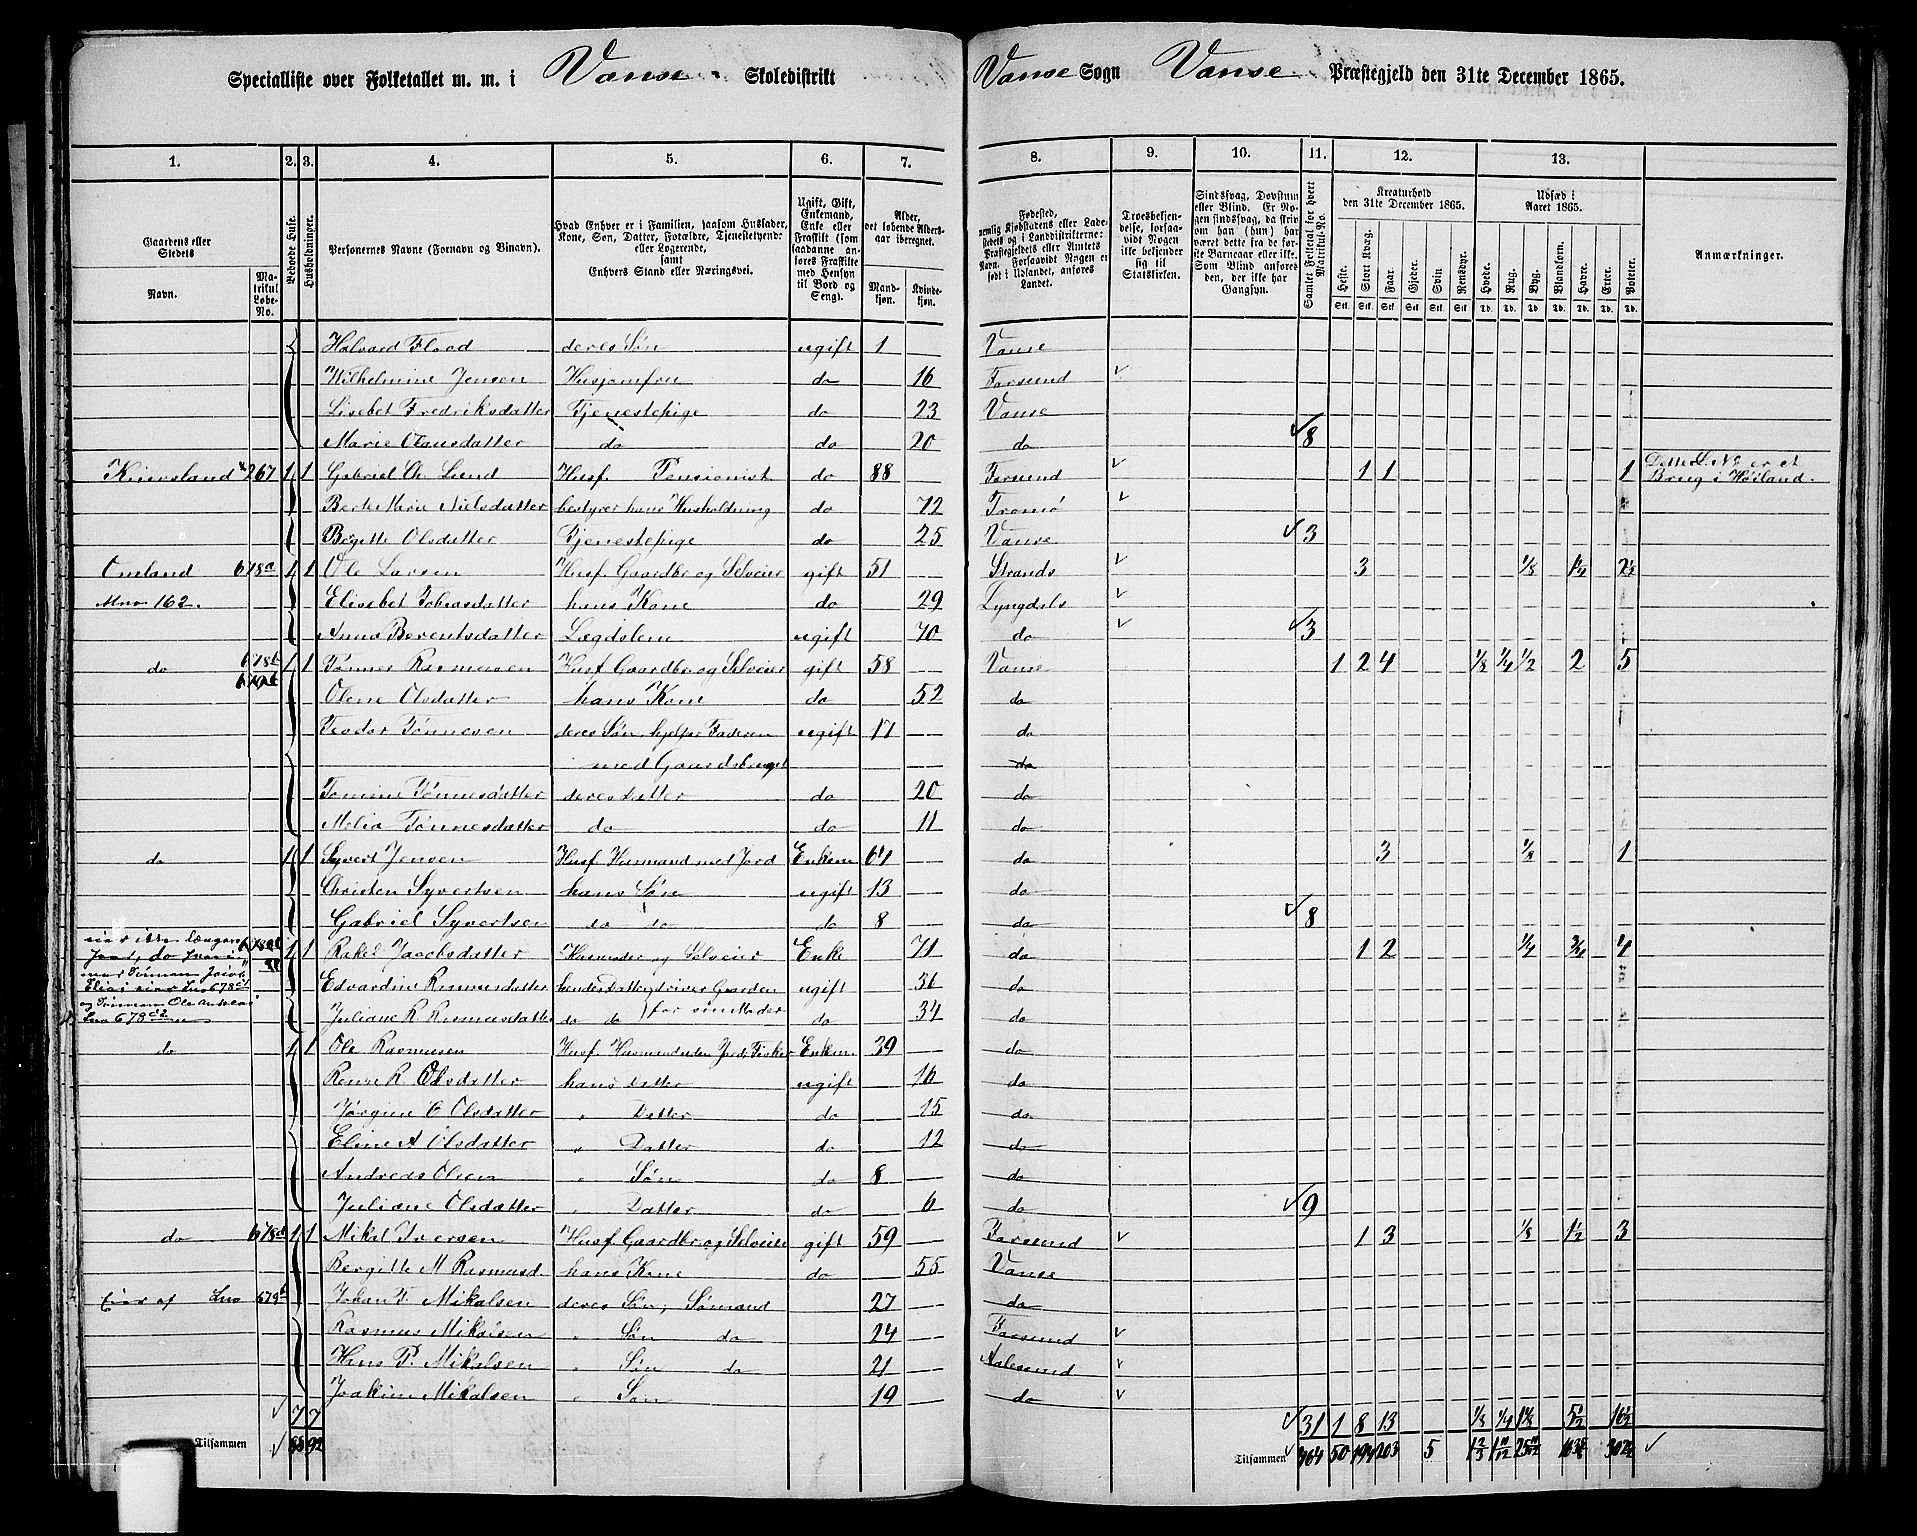 Specialliste over Folketallet m. m. i Vanse Skoledistrikt Vanse Sogn Vanse Præstegjeld den 31te December 1865.
1. 2. 3. 4. 5. 6. 7. 8. 9. 10. 11. 12. 13.
Gaardens eller Stedets Navn. Matrikul Løbe-No. Beboede Huse. Husholdninger. Personernes Navne (Fornavn og Binavn). Hvad Enhver er i Familien, saasom Husfader, Kone, Søn, Datter, Forældre, Tjenestetyende eller Logerende, samt Enhvers Stand eller Næringsvei. Ugift, Gift, Enkemand, Enke eller Fraskilt (som saadanne anføres Fraskilte med Hensyn til Bord og Seng). Alder, det løbende Aldersaar iberegnet. Mandkjøn. Kvindekjøn.
Fødested, nemlig Kjøbstadens eller Ladestedets og i Landdistrikterne: Præstegjeldets eller Amtets Navn. Forsaavidt Nogen er født i Udlandet, anføres Landet. Troesbekjendelse, forsaavidt Nogen ikke bekjender sig til Statskirken. Sindssvag, Døvstum eller Blind. Er Nogen sindssvag, da skrives om han (hun) har været dette fra de første Barneaar eller ikke. Som Blind anføres den, der ikke har Gangsyn. Samlet Folketal for hvert Matrikul-No. Kreaturhold den 31te December 1865. Heste. Stort Kvæg. Faar. Gjeder. Svin. Rensdyr. Udsæd i Aaret 1865. Hvede. Rug. Byg. Blandkorn. Havre. Erter. Poteter. Anmærkninger.
Halvard Flood deres Søn ugift 1 Vanse
Wilhelmine Jensen Husjomfru do 16 Farsund
Lisebet Fredriksdatter Tjenestepige do 23 Vanse
Marie Olausdatter do do 20 do 8
267 1 1 Gabriel Ch. Lund Husf. Pensionist do 88 Farsund 1 1 1 Dette L. No er et Brug i Høiland.
Berte Marie Nielsdatter bestyrer hans Husholdning do 72 Tromø
Birgitte Olsdatter Tjenestepige do 25 Vanse 3
Omland 678a 1 1 Ole Larsen Husf. Gaardbr og Selveier gift 51 Strands 3 1/8 1 1/2 2 1/2
Mno 162. Elisebet Tobiasdatter hans Kone do 29 Lyngdals
Anna Berentsdatter Lægdslem ugift 70 do 3
do 678b 1 1 Tønnes Rasmusen Husf. Gaardbr og Selveier gift 58 Vanse 1 2 4 1/8 1/4 1/2 2 5
Olene Olsdatter hans Kone do 52 do
Teodor Tønnesen deres Søn, hjelper Faderen ugift 17 do
med Gaardsbruget do
Tomine Tønnesdatter deres Datter do 20 do
Melia Tønnesdatter do do 11 do
do 1 1 Syvert Jensen Husf Husmand med Jord Enkem 61 do 3 1/8 1
Christen Syvertsen hans Søn ugift 13 do
Gabriel Syvertsen do do do 8 do 8
1 1 Rakel Jacobsdatter Husmoder og Selveier Enke 71 do 1 2 1/4 3/4 4
Edvardine Rasmusdatter hendes Datter, driver Gaarden ugift 36 do
Juliane R Rasmusdatter do do for sin Moder do 34 do
do 1 1 Ole Rasmusen Husf. Husmand uden Jord, Fisker Enkem. 39 do
R. Olsdatter hans Datter ugift 16 do
Jørgine C Olsdatter " Datter do 15 do
Eline A Olsdatter " Datter do 12 do
Andreas Olsen " Søn do 8 do
Juliane Olsdatter " Datter do 6 do 9
do 678d 1 1 Mikal Iversen Husf. Gaardbr og Selveier gift 59 Farsund 1 3 1/8 1 1/2 3
Bergitte M Rasmusd. hans Kone do 55 Vanse
Eier af Lno 679b Johan T. Mikalsen deres Søn, Sømand 27 do
Rasmus Mikalsen " Søn do 24 Farsund
Hans P. Mikalsen " Søn do 21 Aalesund
Joakim Mikalsen " Søn 19 do
7 7 31 1 8 13 1/8 1/4 5 1/2 16 1/2
Tilsammen 88 92 Tilsammen 464 50 194 203 5